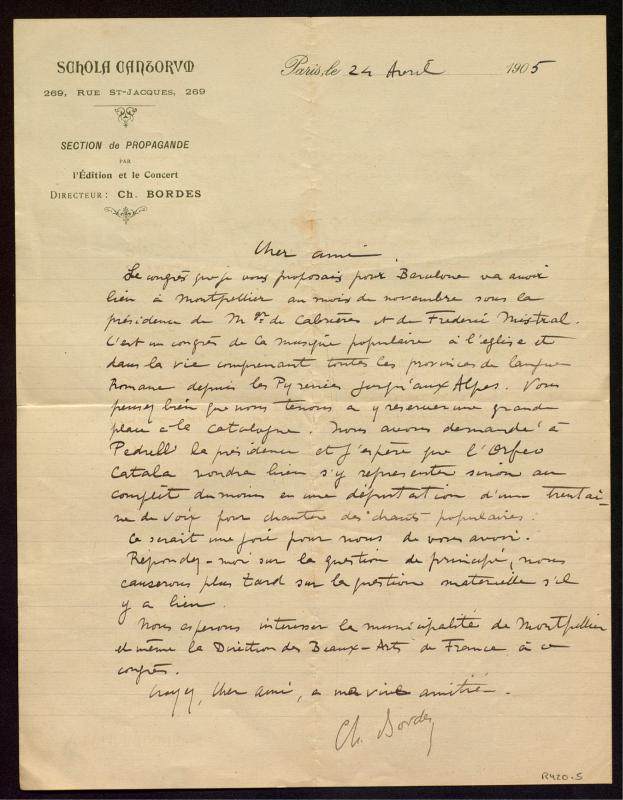 SCHOLA CANTORVM
269, RUE ST-JACQUES, 269
SECTION de PROPAGANDE
PAR
l'Édition et le Concert
DIRECTEUR : Ch. BORDES
Paris, le 24 Avril 1905
Cher ami,
Le congrès que je vous proposais pour Barcelone va avoir
lieu à Montpellier au mois de novembre sous la
présidence de Mgr de Cabrières et de Frederic Mistral.
C'est un congrès de la musique populaire à l'église et
dans la vie comprenant toutes les provinces de langue
Romane depuis les Pyrenées jusqu'aux Alpes. Vous
pensez bien que nous tenons a y reserver une grande
place à la Catalogne. Nous avons demandé à
Pedrell la présidence et j'espère que l'Orfeo
Catala voudra bien s'y representer sinon au
complet du moins en une députation d'une trentai-
ne de voix pour chanter des chants populaires.
Ce serait une joie pour nous de vous avoir.
Répondez-moi sur la question de principe, nous
causerons plus tard sur la question materielle s'il
y a lieu.
Nous esperons interesser la municipalité de Montpellier
et même la Direction des Beaux-Arts de France à ce
congrès.
Croyez, cher ami, a ma vive amitié.
Ch. Bordes
R420-S